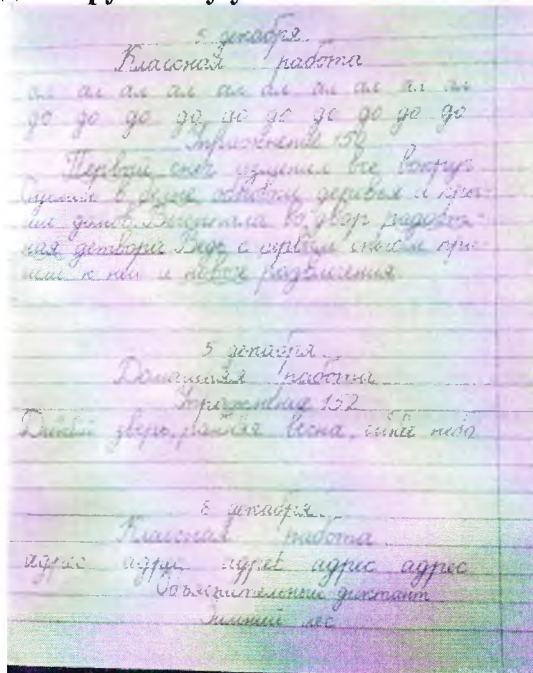 5 декабря.
Классная работа
ал ал ал ал ал ал ал ал ал ал
до до до до до до до до до до
Упражнение 150
Первый снег изменил все вокруг
в белые деревья и кры-
ши домов. Высыпала во двор радост-
ная детвора. Ведь с первым снегом при-
шли к ней и новые развлечения.
5 декабря.
Домашняя работа
Упражнение 152
зверь, ранняя весна, синее небо
8 декабря.
Классная работа
адрес адрес адрес адрес адрес
Объяснительный диктант
Зимний лес